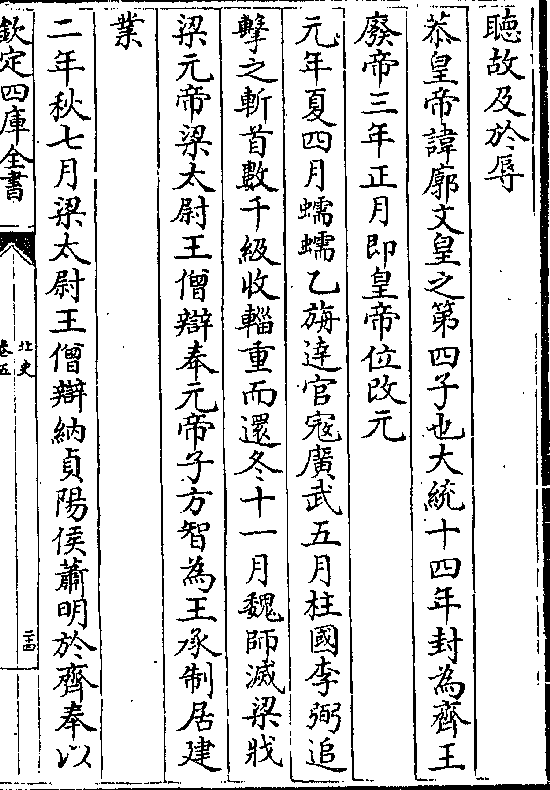 聽故及於辱
恭皇帝諱廓文皇之第四子也大統十四年封為齊王
廢帝三年正月即皇帝位改元
元年夏四月蠕蠕乙旃達官寇廣武五月柱國李弼追
擊之斬首數千級收輜重而還冬十一月魏師滅梁戕
梁元帝梁太尉王僧辯奉元帝子方智為王承制居建
業
二年秋七月梁太尉王僧辯納貞陽侯蕭明於齊奉以
欽定四庫全書
北史
卷五
二十四